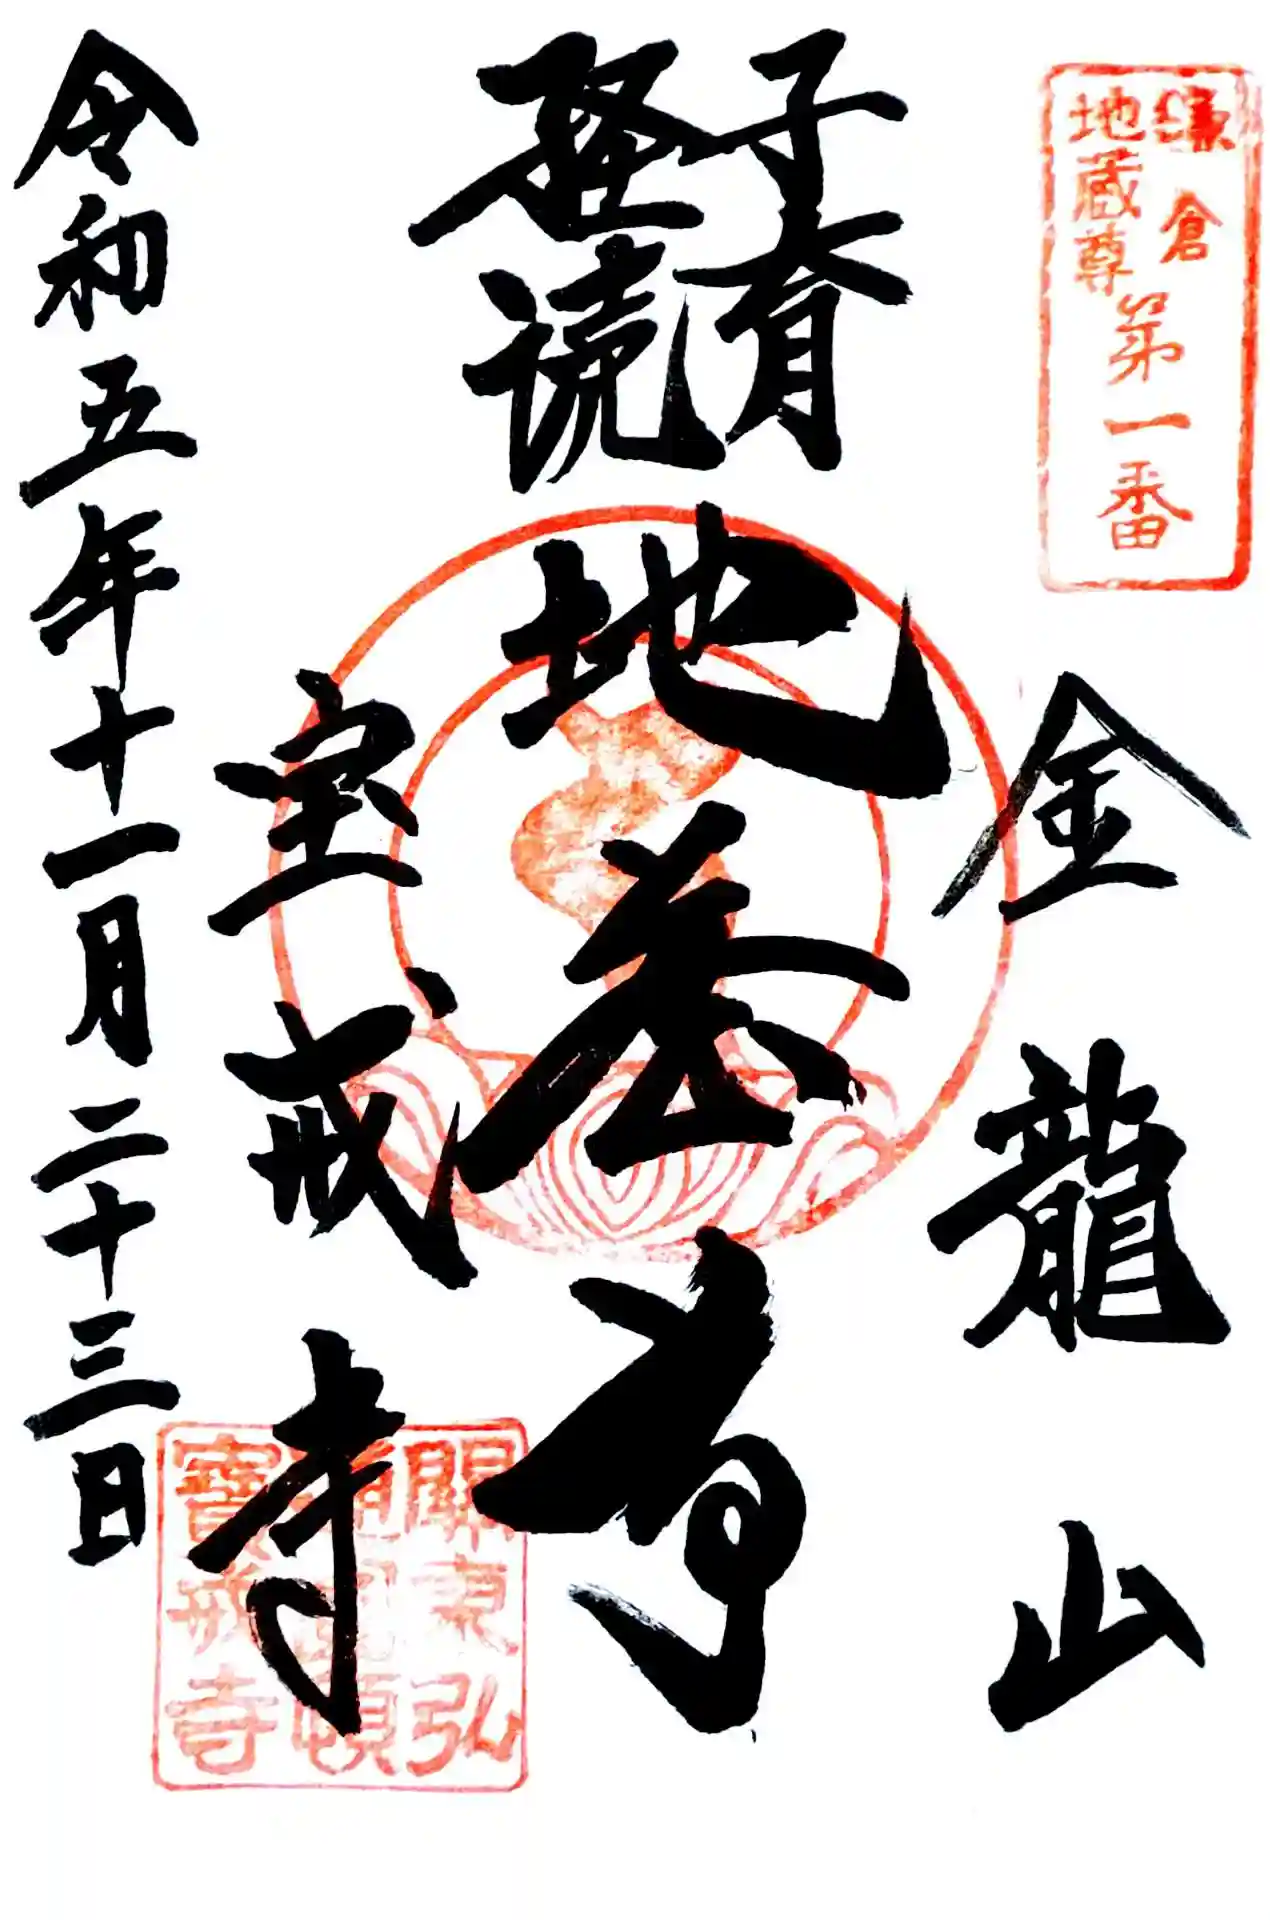 鎌倉
地蔵尊
第一番
金龍山
子育
経読
地蔵尊
宝戒寺
令和五年十一月二十三日
關東弘
寶戒寺